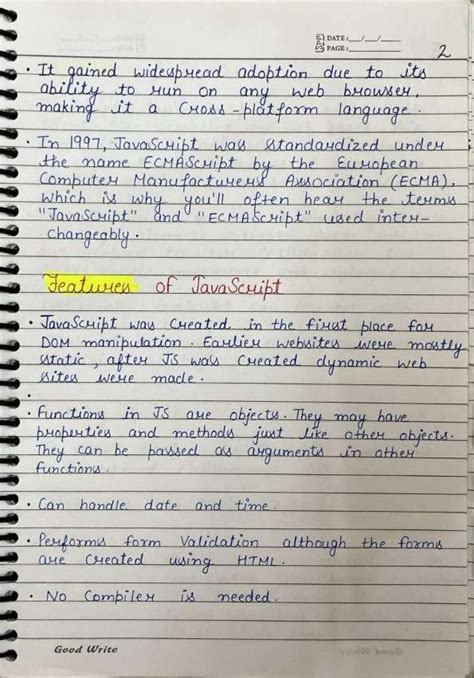 DATE: __/__/__
PAGE:
2
• It gained widespread adoption due to its
ability to run on any web browser,
making it a Cross-platform language.
• In 1997, JavaScript was standardized under
the name ECMAScript by the European
Computer Manufacturers Association (ECMA),
which is why you'll often hear the terms
"JavaScript" and "ECMAScript" used inter-
changeably.
Features of JavaScript
• JavaScript was created in the first place for
DOM manipulation. Earlier websites were mostly
static, after JS was created dynamic web
sites were made.
•
• Functions in JS are objects. They may have
properties and methods just like other objects.
They can be passed as arguments in other
functions.
• Can handle date and time.
• Performs form Validation although the forms
are created using HTML.
• No Compiler is needed.
Good Write